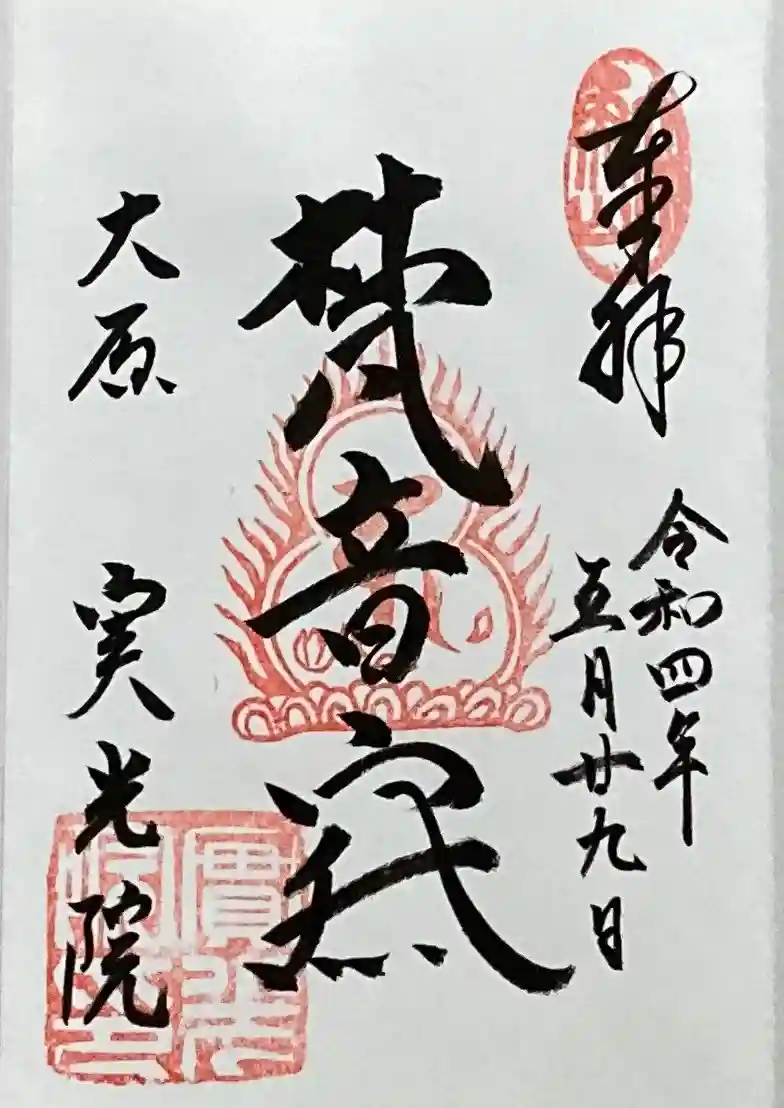 奉拝
令和四年
五月廿九日
梵音
大原 実光院